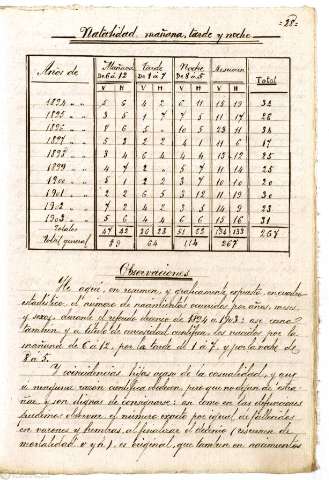 = 28 =
Natalidad, mañana, tarde y noche
Años de Mañana De 6 á 12 tarde De 1 á 7 Noche De 8 á 5 Resumen Total
V H V H V H V H
1894 " " 5 6 4 2 6 11 15 19 34
1895 " " 3 5 1 7 7 5 11 17 28
1896 " " 8 6 5 " 10 5 23 11 34
1897 " " 5 2 2 2 4 1 11 6 17
1898 " " 3 4 6 4 4 4 13 12 25
1899 " " 4 7 2 " 5 7 11 14 25
1900 " " 5 1 2 2 3 7 10 10 20
1901 " " 2 2 6 5 3 12 11 19 30
1902 " " 7 4 2 3 5 14 9 23
1903 " " 5 6 4 4 6 6 15 16 31
Totales 47 43 51 63 134 133 267
total general 64 114 267
Observaciones
He aquí, en resumen, y graficamente expuesto, en cuadro
estadistico, el número de nacimientos ocurridos por años, meses,
y sexos, durante el referido decenio de 1894 á 1903: asi como
tambien y á titulo de curiosidad cientifica, los nacidos por la
mañana de 6 á 12, por la tarde de 1 á 7, y por la noche de
8 á 5.
Y coincidencias hijas acaso de la casualidad, y que
á ninguna razón cientifica obedecen, pero que no dejan de extra-
ñar, y son dignas de consignarse: asi como en las defunciones
pudimos observar el número exacto por igual, de fallecidos
en varones y hembras, al finalizar el decenio (resumen de
mortalidad v. y h.), es original, que tambien en nacimientos